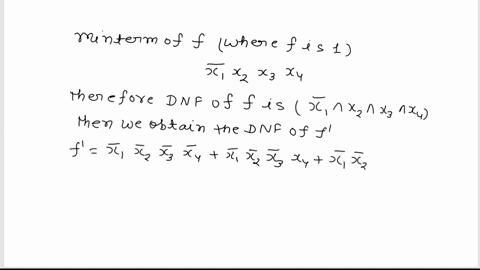 minterm of f (where f is 1)
x̄₁ x₂ x₃ x₄
therefore DNF of f is ( x̄₁ ∧ x₂ ∧ x₃ ∧ x₄)
Then we obtain the DNF of f'
f' = x̄₁ x̄₂ x̄₃ x̄₄ + x̄₁ x̄₂ x̄₃ x₄ + x̄₁ x̄₂